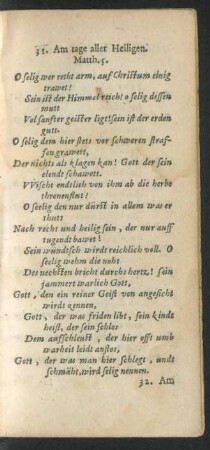 31. Am tage aller Heiligen.
Matth. 5.
O selig wer recht arm, auf Christum einig
trawet!
Sein ist der Himmel reich! o selig dessen
mutt
Vol sanfter geister ligt! sein ist der erden
gutt.
O selig dem hier stets vor schweren straf-
fen grawett,
Der nichts als klagen kan! Gott der sein
elend schawett.
VVischt endtlich von ihm ab die herbe
threnenflut!
O seelig den nur dürst in allem was er
thutt
Nach recht und heilig sein, der nur auff
tugendt bawet!
Sein wundsch wirdt reichlich voll. O
seelig wehm die noht
Des nechsten bricht durchs hertz! sein
jammert warlich Gott,
Gott, den ein reiner Geist von angesicht
wirdt kennen,
Gott, der was friden libt, sein kindt
heist, der sein schlos
Dem aufschleust, der hier offt umb
warheit leidt anstos,
Gott, der was man hier schlegt, undt
schmäht, wird selig nennen.
32. Am